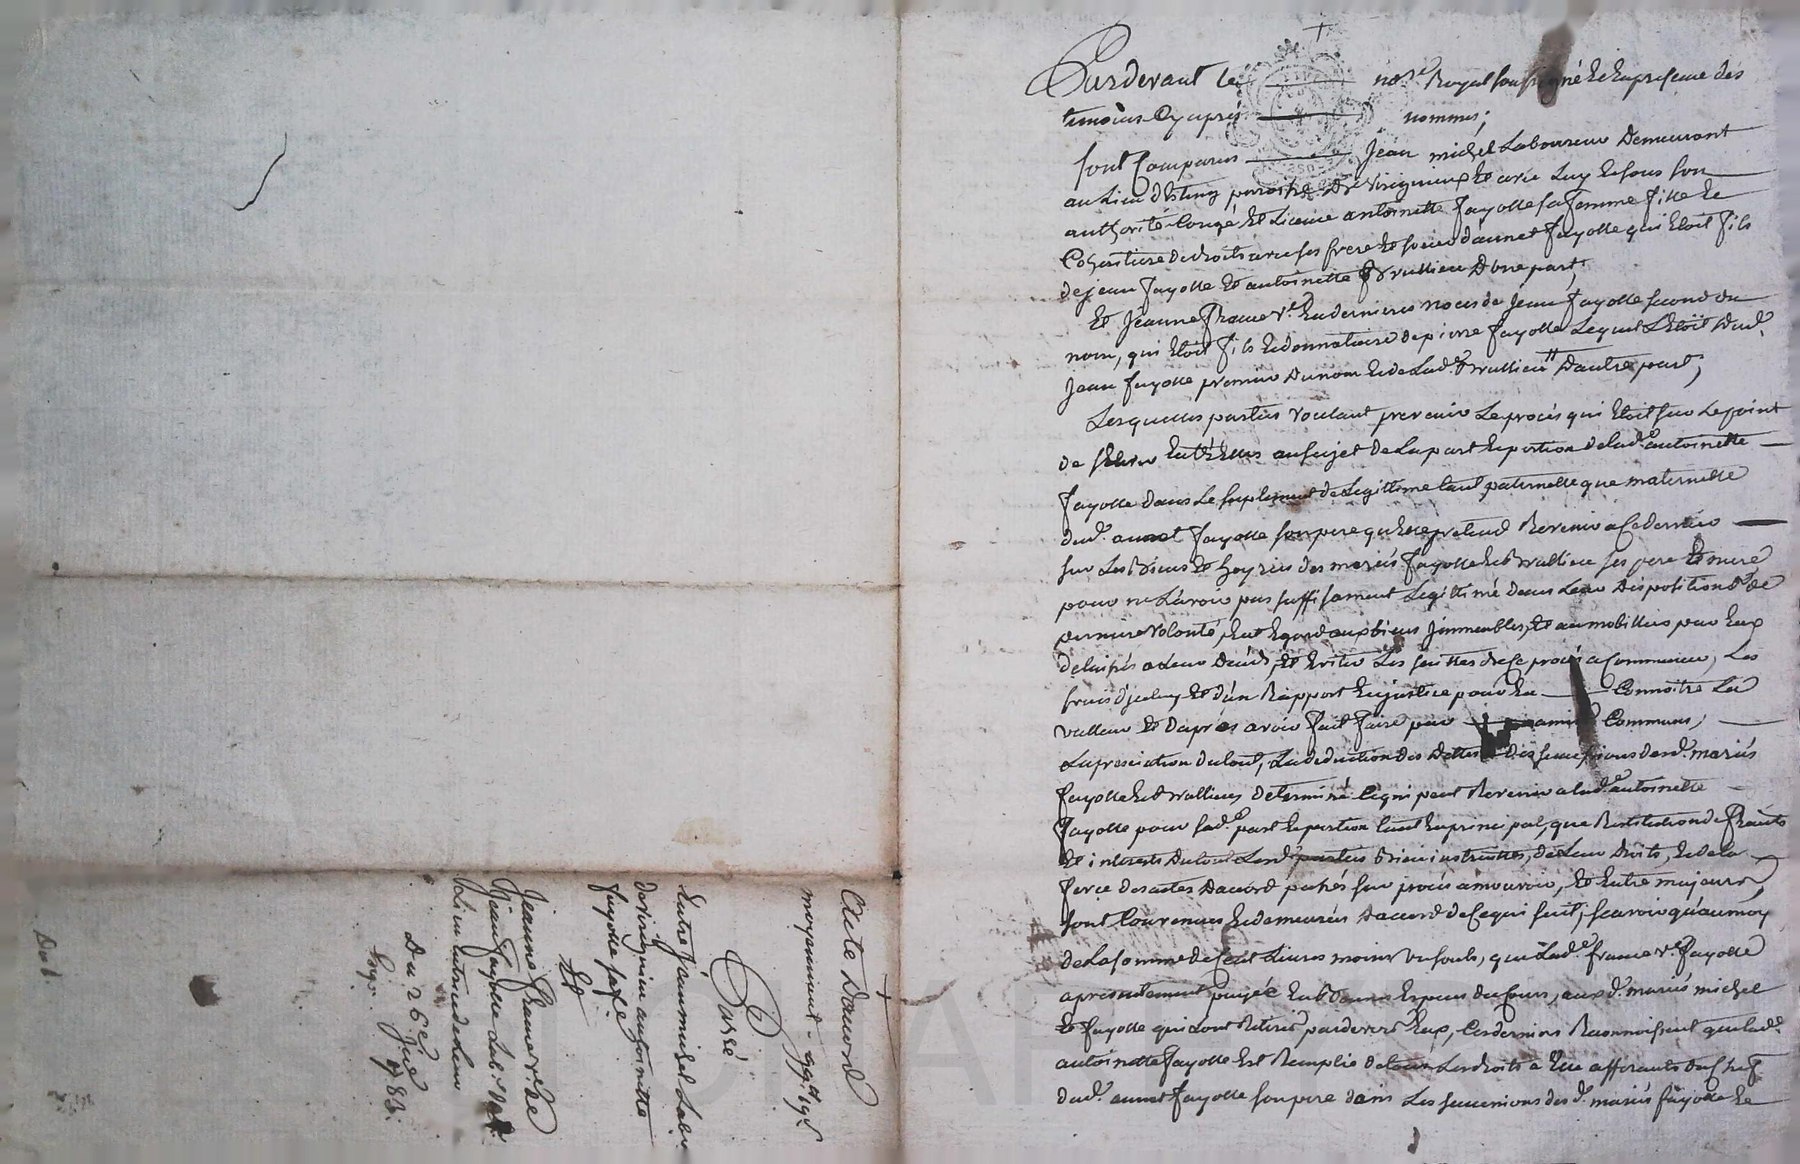 Pardevant le no.re Royal soussigné Et En presence des
temoins Cy aprés nommés;
sont Comparus Jean michel Laboureur Demeurant
au Lieu paroisse De Virignieux Et avec Luy Et sous son
authorité Congé Et Licence antoinette fayolle sa femme fille Et
Cohéritiere de droits avec ses frere Et soeur d'annet fayolle qui Etoit fils
de jean fayolle Et antoinette Vrallieu D'une part;
Et Jeanne france v.e En dernieres noces de Jean fayolle second du
nom, qui Etoit fils Et donnataire de pierre fayolle Lequel L'Etoit dud.
Jean fayolle premier Du nom Et de Lad.e D'autre part;
Lesquelles parties voulant prevenir Le procés qui Etoit sur Le point
de Entr'Elles au sujet de La part Et portion de lad.e antoinette
fayolle dans Le suplement de Legittime tant paternelle que maternelle
dud. annet fayolle son pere qu'elle pretend Revenir a Ce dernier
sur Les Biens Et hoyries des mariés fayolle Et ses pere Et mere
pour ne L'avoir pas suffisament Legittimé dans Leur Dispositions de
derniere volonté, Eut Egard aux biens jmmeubles, Et au mobilliers par Eux
delaissés a Leur Décés, Et Eviter Les suittes de Ce procés a Commencer, Les
frais d'jceluy Et d'un Rapport En justice pour En Connoitre La
valleur Et D'aprés avoir fait faire par amis Communs,
L'apreciation du tout, La deduction des Dettes des successions desd. mariés
fayolle Et determiné Ce qui peut Revenir a lad.e antoinette
fayolle pour sad.e part Et portion tant En principal, que Restitution de fruits
Et interests Du tout Lesd. parties Bien instruittes, de Leur Droits, Et de la
force des actes D'accord passés sur procés a mouvoir, Et Entre majeurs,
sont Convenues Et demeurées D'accord de Ce qui suit; scavoir qu'au moyen
de La somme de Cent Livres moins sols, que Lad.e france v.e fayolle
a presentement payée En Bonnes Especes du Cours, aux d. mariés michel
Et fayolle qui L'ont Retirée pardevers Eux, Ces derniers Reconnoissent que lad.e
antoinette fayolle Est Remplie de tous Les droits a Elle afferants du Chef
dud. annet fayolle son pere dans Les successions des d. mariés fayolle Et
acte D'accord
moyennant 99.lt 19.s
Passé
Entre Jean michel Labr
de virignieu antoinette
fayolle sa fe
Et
Jeanne france v.e de
Jean fayolle Lab.r dud.
Lieu
Du 26e 1783.
Exp.